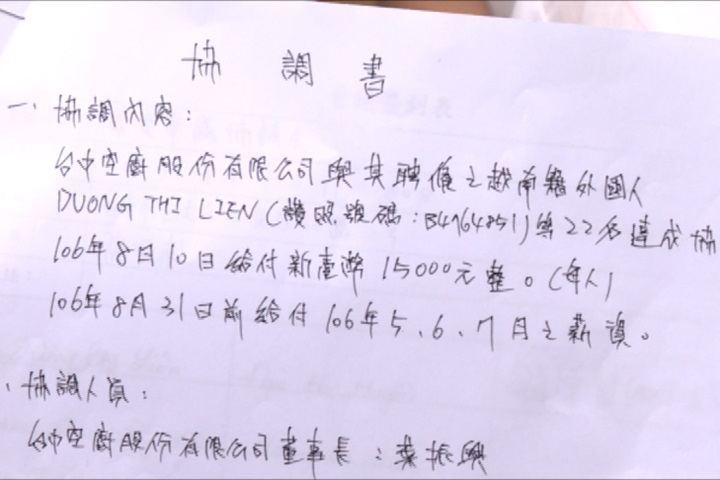 協調書
一、協調內容：
台中空廚股份有限公司與其聘僱之越南籍外國人
DUONG THI LIEN (護照號碼：B4964851) 等22名達成協
106年8月10日給付新臺幣15000元整。(每人)
106年8月31日前給付106年5、6、7月之薪資。
、協調人員：
台中空廚股份有限公司董事長：葉振興